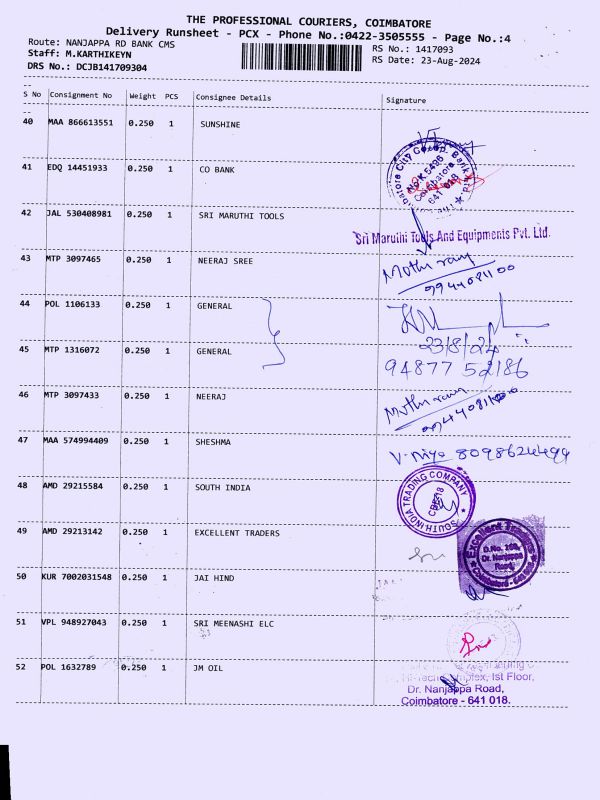 THE PROFESSIONAL COURIERS, COIMBATORE
Delivery Runsheet - PCX - Phone No.:0422-3505555 - Page No.:4
Route: NANJAPPA RD BANK CMS
RS No.: 1417093
Staff: M.KARTHIKEYN
RS Date: 23-Aug-2024
DRS No.: DCJB141709304
S No Consignment No Weight PCS Consignee Details Signature
40 MAA 866613551 0.250 1 SUNSHINE
41 EDQ 14451933 0.250 1 CO BANK
Coimbatore
641 018
42 JAL 530408981 0.250 1 SRI MARUTHI TOOLS
Sri Maruthi Tools And Equipments Pvt. Ltd.
43 MTP 3097465 0.250 1 NEERAJ SREE
44 POL 1106133 0.250 1 GENERAL
23/8/24
45 MTP 1316072 0.250 1 GENERAL
94877 52186
46 MTP 3097433 0.250 1 NEERAJ
47 MAA 574994409 0.250 1 SHESHMA
48 AMD 29215584 0.250 1 SOUTH INDIA
SOUTH INDIA TRADING COMPANY
CBE-18
49 AMD 29213142 0.250 1 EXCELLENT TRADERS
Excellent Traders
Dr. Nanjappa
Road,
Coimbatore - 641 018
50 KUR 7002031548 0.250 1 JAI HIND
51 VPL 948927043 0.250 1 SRI MEENASHI ELC
52 POL 1632789 0.250 1 JM OIL
Ist Floor,
Dr. Nanjappa Road,
Coimbatore - 641 018.